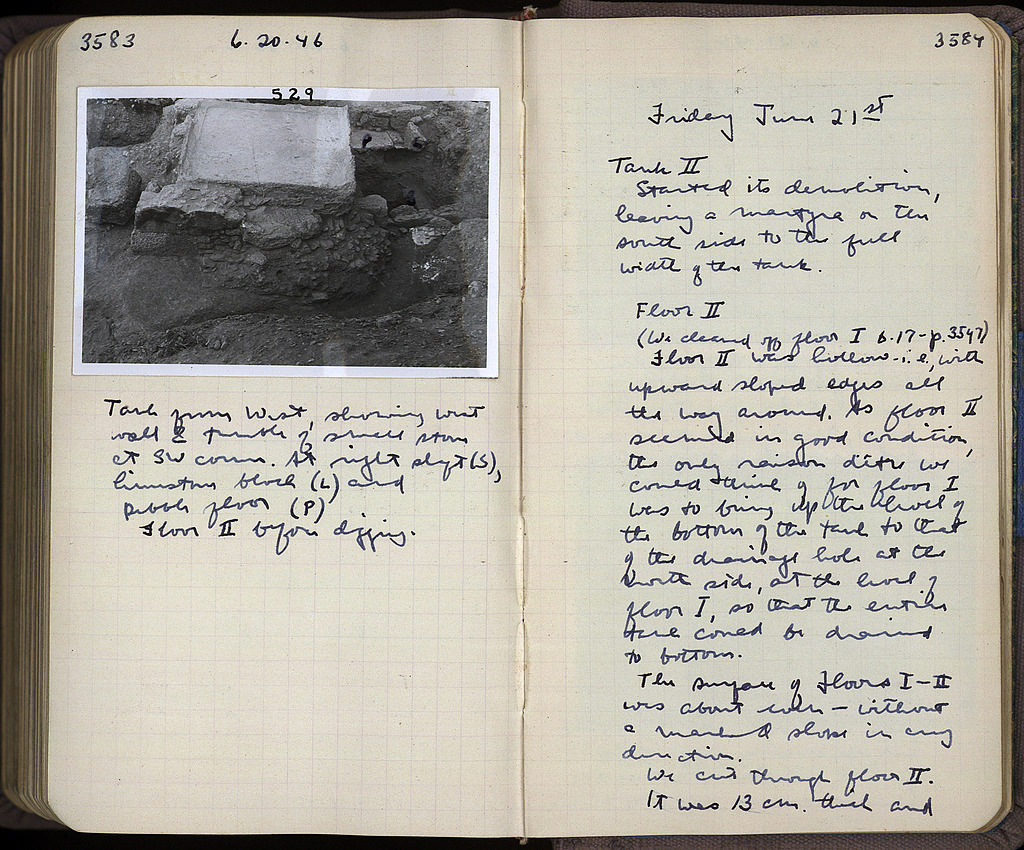 3583
6.20.46
529
Tank from West, showing west
wall & tumble of small stone
at SW corner. At right slept (S),
limestone block (L) and
pebble floor (P)
Floor II before digging.
3584
Friday June 21st
Tank II
Started its demolition,
leaving a martyra on the
south side to the full
width of the tank.
Floor II
(We cleaned off floor I 6.17 - p.3547)
Floor II was hollow - i.e, with
upward sloped edges all
the way around. As floor II
seemed in good condition,
the only raison d'etre we
could think of for floor I
was to bring up the level of
the bottom of the tank to that
of the drainage hole at the
north side, at the level of
floor I, so that the entire
tank could be drained
to bottom.
The surface of Floors I-II
was about even - without
a marked slope in any
direction.
We cut through floor II.
It was 13 cm. thick and